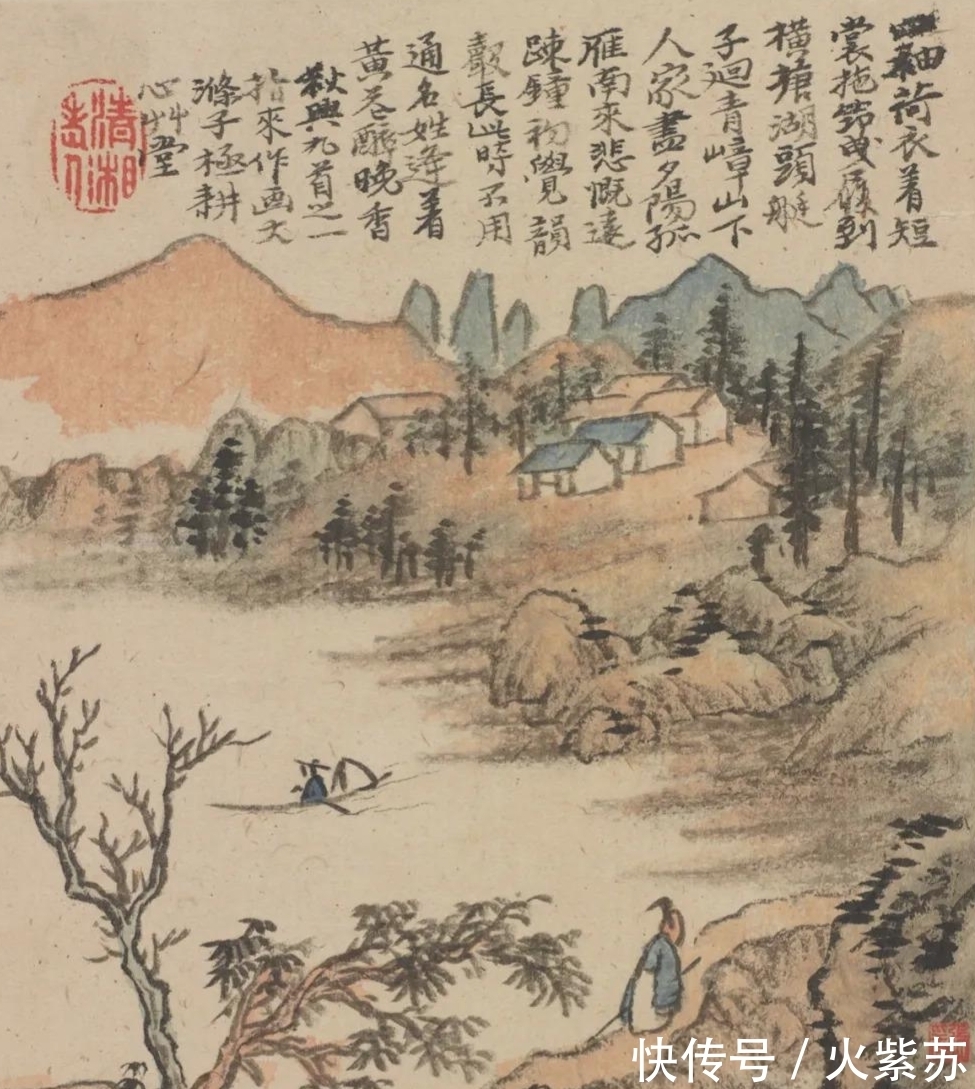 袖荷衣着短
裳拖到
橫塘湖頭艇
子迴青嶂山下
人家盡夕陽孤
雁南來悲慨遠
疎鐘初覺韻
聲長此時不用
通名姓逢着
黃花醉晚香
秋興九首之一
拈來作画大
滌子極耕
心艸堂
清湘老人
快传号 / 火紫苏